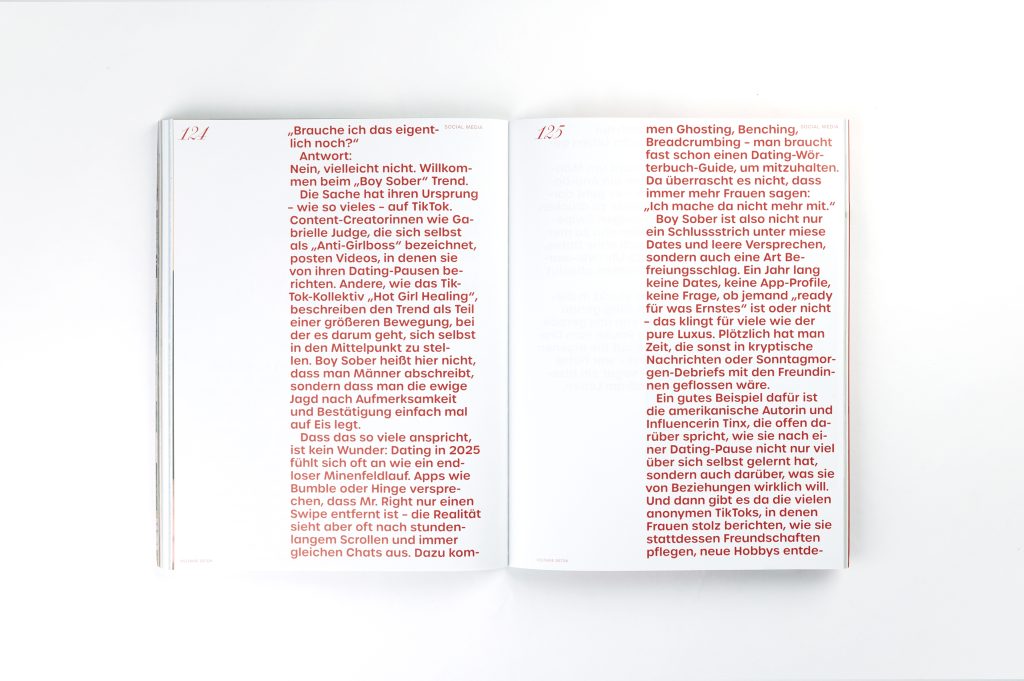 124
SOCIAL MEDIA
„Brauche ich das eigent-
lich noch?“
Antwort:
Nein, vielleicht nicht. Willkom-
men beim „Boy Sober“ Trend.
Die Sache hat ihren Ursprung
– wie so vieles – auf TikTok.
Content-Creatorinnen wie Ga-
brielle Judge, die sich selbst
als „Anti-Girlboss“ bezeichnet,
posten Videos, in denen sie
von ihren Dating-Pausen be-
richten. Andere, wie das Tik-
Tok-Kollektiv „Hot Girl Healing“,
beschreiben den Trend als Teil
einer größeren Bewegung, bei
der es darum geht, sich selbst
in den Mittelpunkt zu stel-
len. Boy Sober heißt hier nicht,
dass man Männer abschreibt,
sondern dass man die ewige
Jagd nach Aufmerksamkeit
und Bestätigung einfach mal
auf Eis legt.
Dass das so viele anspricht,
ist kein Wunder: Dating in 2025
fühlt sich oft an wie ein end-
loser Minenfeldlauf. Apps wie
Bumble oder Hinge verspre-
chen, dass Mr. Right nur einen
Swipe entfernt ist – die Realität
sieht aber oft nach stunden-
langem Scrollen und immer
gleichen Chats aus. Dazu kom-
125
SOCIAL MEDIA
men Ghosting, Benching,
Breadcrumbing – man braucht
fast schon einen Dating-Wör-
terbuch-Guide, um mitzuhalten.
Da überrascht es nicht, dass
immer mehr Frauen sagen:
„Ich mache da nicht mehr mit.“
Boy Sober ist also nicht nur
ein Schlussstrich unter miese
Dates und leere Versprechen,
sondern auch eine Art Be-
freiungsschlag. Ein Jahr lang
keine Dates, keine App-Profile,
keine Frage, ob jemand „ready
für was Ernstes“ ist oder nicht
– das klingt für viele wie der
pure Luxus. Plötzlich hat man
Zeit, die sonst in kryptische
Nachrichten oder Sonntagmor-
gen-Debriefs mit den Freundin-
nen geflossen wäre.
Ein gutes Beispiel dafür ist
die amerikanische Autorin und
Influencerin Tinx, die offen da-
rüber spricht, wie sie nach ei-
ner Dating-Pause nicht nur viel
über sich selbst gelernt hat,
sondern auch darüber, was sie
von Beziehungen wirklich will.
Und dann gibt es da die vielen
anonymen TikToks, in denen
Frauen stolz berichten, wie sie
stattdessen Freundschaften
pflegen, neue Hobbys entde-